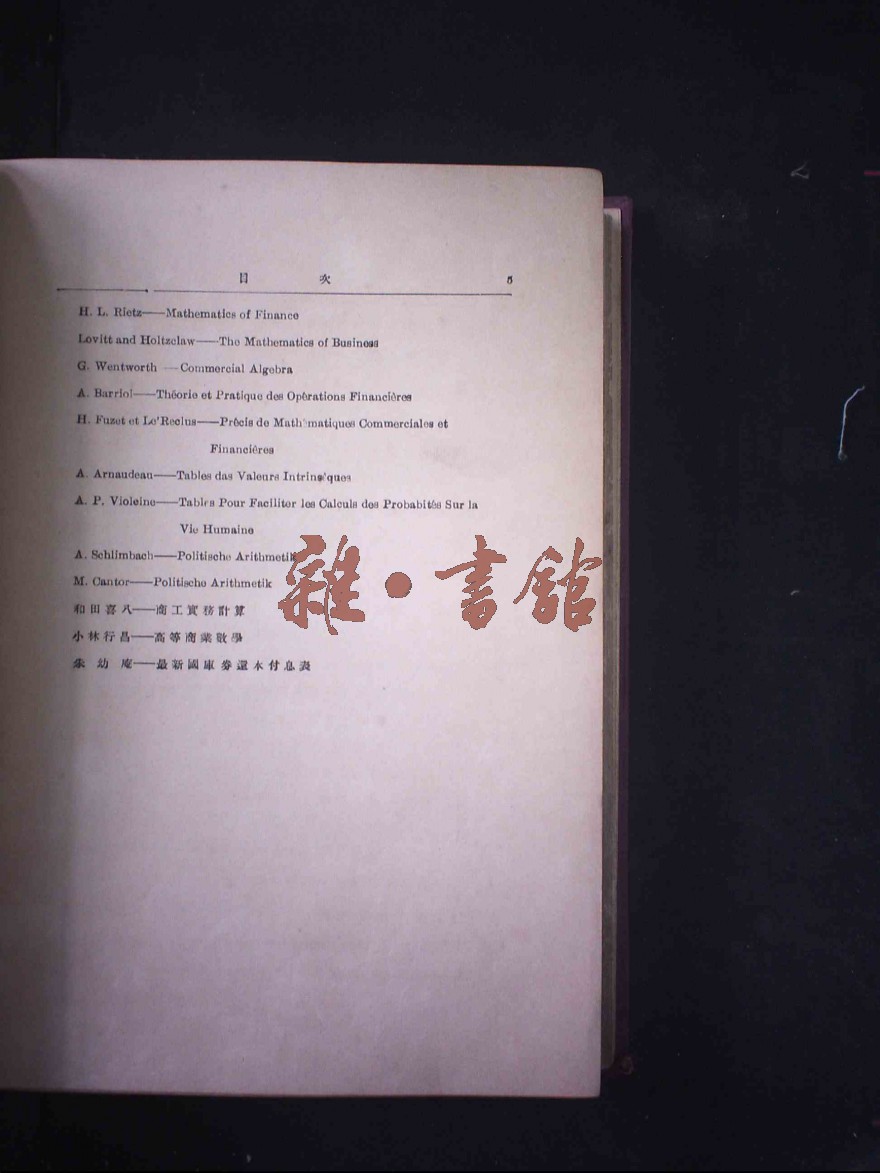 目 次 5
H. L. Rietz——Mathematics of Finance
Lovitt and Holtzclaw——The Mathematics of Business
G. Wentworth——Commercial Algebra
A. Barriol——Théorie et Pratique des Opérations Financières
H. Fuzet et Le'Reclus——Précis de Math matiques Commerciales et
Financières
A. Arnaudeau——Tables das Valeurs Intrinsèques
A. P. Violeine——Tables Pour Faciliter les Calculs des Probabités Sur la
Vie Humaine
A. Schlimbach——Politische Arithmetik
M. Cantor——Politische Arithmetik
和田喜八——商工實務計算
小林行昌——高等商業數學
朱幼庵——最新國庫券還本付息表
雜·書館